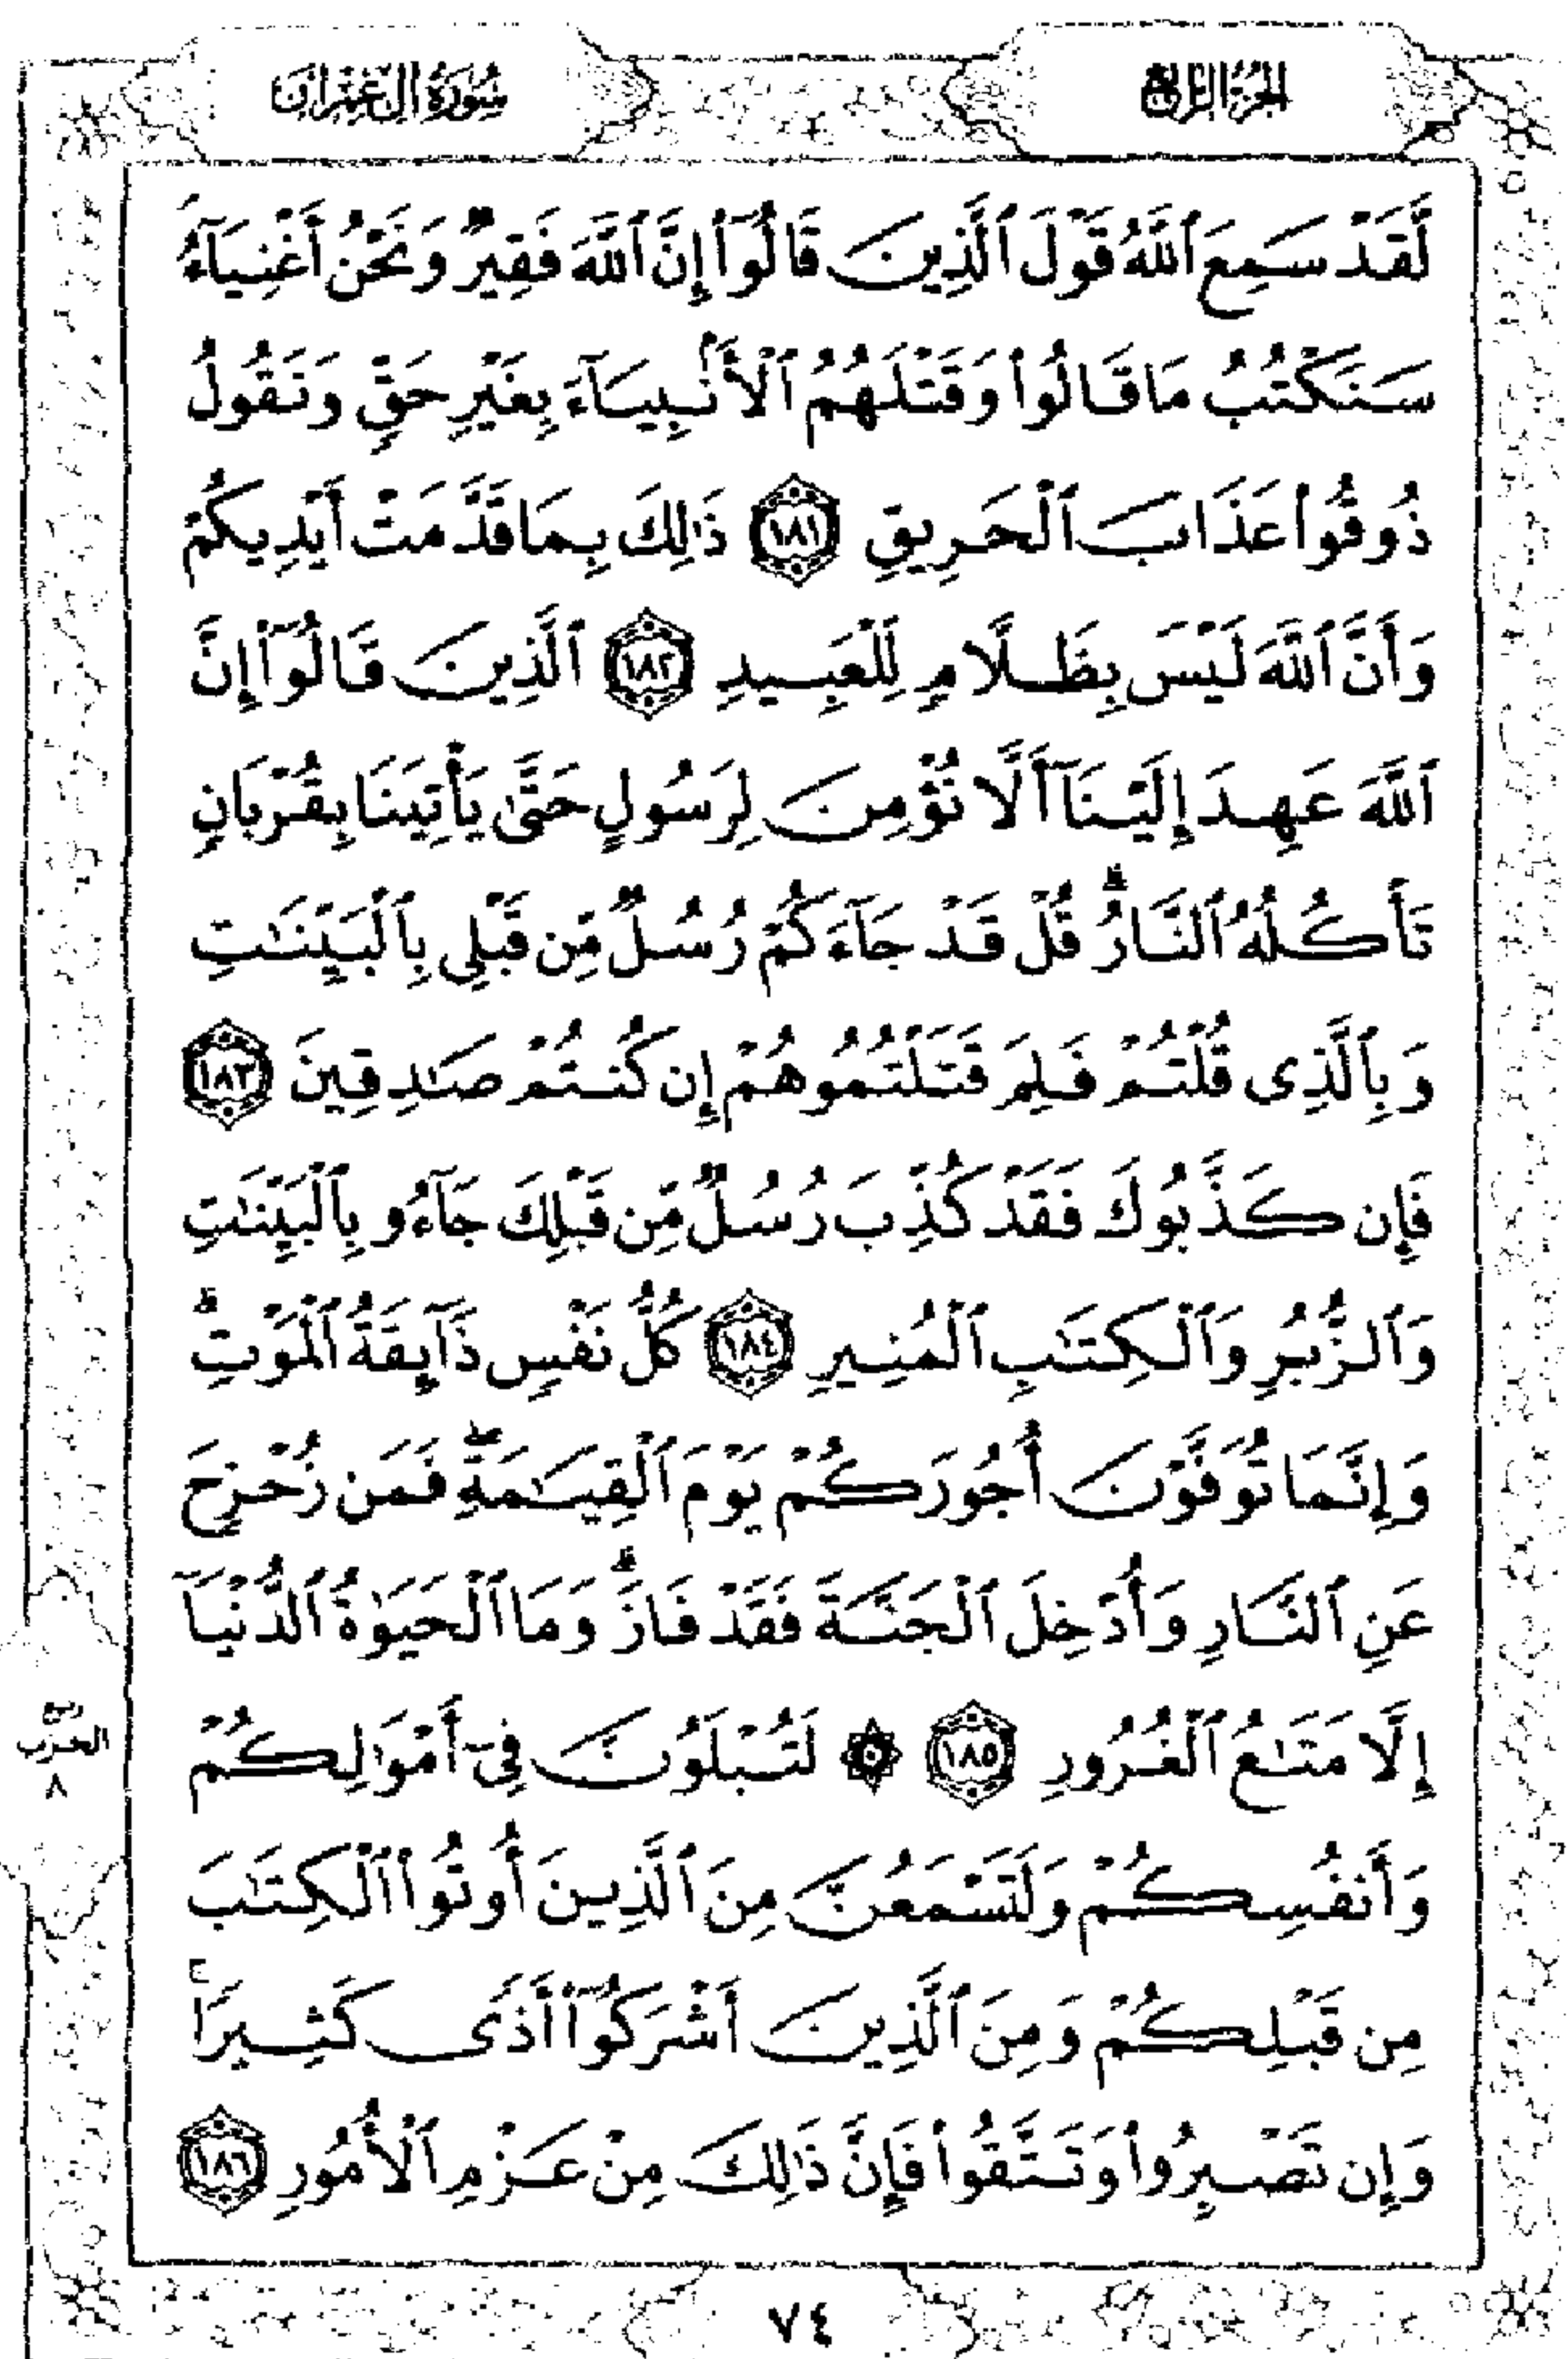 الجزء الرابع
سورة آل عمران
لَّقَدْ سَمِعَ ٱللَّهُ قَوْلَ ٱلَّذِينَ قَالُوٓا۟ إِنَّ ٱللَّهَ فَقِيرٌ وَنَحْنُ أَغْنِيَآءُ ۘ
سَنَكْتُبُ مَا قَالُوا۟ وَقَتْلَهُمُ ٱلْأَنۢبِيَآءَ بِغَيْرِ حَقٍّ وَنَقُولُ
ذُوقُوا۟ عَذَابَ ٱلْحَرِيقِ ١٨١ ذَٰلِكَ بِمَا قَدَّمَتْ أَيْدِيكُمْ
وَأَنَّ ٱللَّهَ لَيْسَ بِظَلَّامٍ لِّلْعَبِيدِ ١٨٢ ٱلَّذِينَ قَالُوٓا۟ إِنَّ
ٱللَّهَ عَهِدَ إِلَيْنَآ أَلَّا نُؤْمِنَ لِرَسُولٍ حَتَّىٰ يَأْتِيَنَا بِقُرْبَانٍ
تَأْكُلُهُ ٱلنَّارُ ۗ قُلْ قَدْ جَآءَكُمْ رُسُلٌ مِّن قَبْلِى بِٱلْبَيِّنَٰتِ
وَبِٱلَّذِى قُلْتُمْ فَلِمَ قَتَلْتُمُوهُمْ إِن كُنتُمْ صَٰدِقِينَ ١٨٣
فَإِن كَذَّبُوكَ فَقَدْ كُذِّبَ رُسُلٌ مِّن قَبْلِكَ جَآءُو بِٱلْبَيِّنَٰتِ
وَٱلزُّبُرِ وَٱلْكِتَٰبِ ٱلْمُنِيرِ ١٨٤ كُلُّ نَفْسٍ ذَآئِقَةُ ٱلْمَوْتِ ۗ
وَإِنَّمَا تُوَفَّوْنَ أُجُورَكُمْ يَوْمَ ٱلْقِيَٰمَةِ ۖ فَمَن زُحْزِحَ
عَنِ ٱلنَّارِ وَأُدْخِلَ ٱلْجَنَّةَ فَقَدْ فَازَ ۗ وَمَا ٱلْحَيَوٰةُ ٱلدُّنْيَآ
إِلَّا مَتَٰعُ ٱلْغُرُورِ ١٨٥ ۞ لَتُبْلَوُنَّ فِىٓ أَمْوَٰلِكُمْ
وَأَنفُسِكُمْ وَلَتَسْمَعُنَّ مِنَ ٱلَّذِينَ أُوتُوا۟ ٱلْكِتَٰبَ
مِن قَبْلِكُمْ وَمِنَ ٱلَّذِينَ أَشْرَكُوٓا۟ أَذًى كَثِيرًا ۚ
وَإِن تَصْبِرُوا۟ وَتَتَّقُوا۟ فَإِنَّ ذَٰلِكَ مِنْ عَزْمِ ٱلْأُمُورِ ١٨٦
ربع
الحزب
٨
٧٤